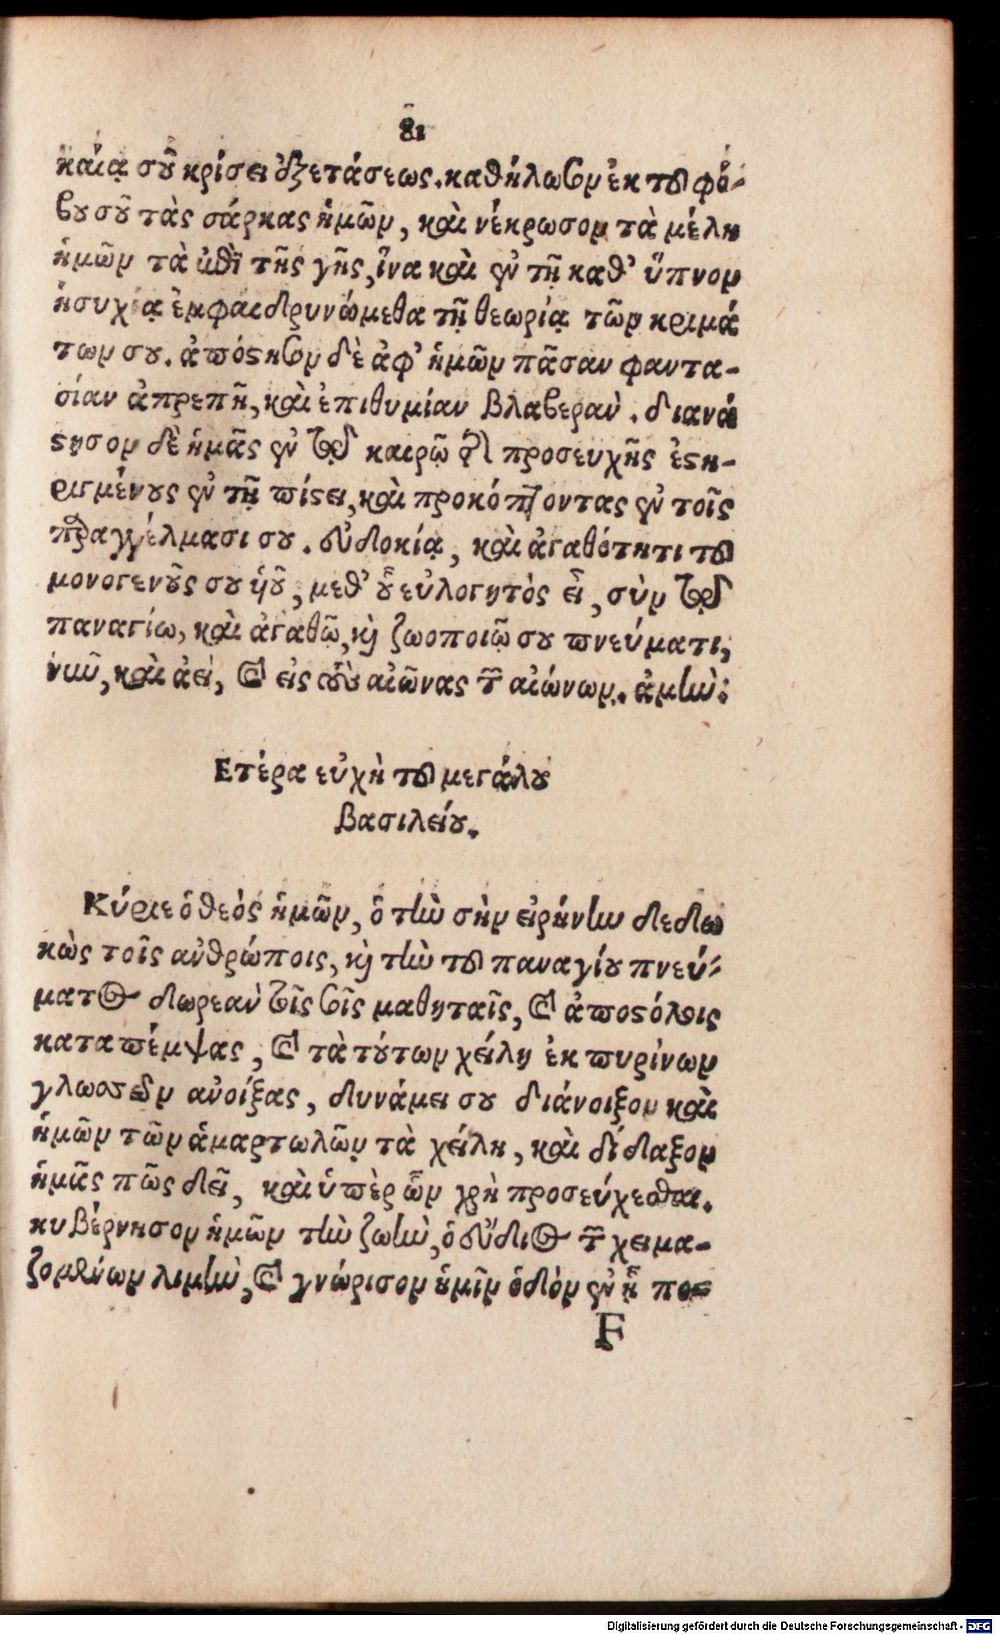 81
καίᾳ σοῦ κρίσει ἐξετάσεως. καθήλωσον ἐκ τοῦ φό-
βου σοῦ τὰς σάρκας ἡμῶν, καὶ νέκρωσον τὰ μέλη
ἡμῶν τὰ ἐπὶ τῆς γῆς, ἵνα καὶ ἐν τῇ καθ' ὕπνον
ἡσυχίᾳ ἐμφαιδρυνώμεθα τῇ θεωρίᾳ τῶν κριμά
των σου. ἀπόστησον δὲ ἀφ' ἡμῶν πᾶσαν φαντα-
σίαν ἀπρεπῆ, καὶ ἐπιθυμίαν βλαβεράν. διανά
στησον δὲ ἡμᾶς ἐν τῷ καιρῷ τῆς προσευχῆς ἐστη-
ριγμένους ἐν τῇ πίστει, καὶ προκόπτοντας ἐν τοῖς
παραγγέλμασι σου. εὐδοκίᾳ, καὶ ἀγαθότητι τοῦ
μονογενοῦς σου ὑοῦ, μεθ' οὗ εὐλογητὸς εἶ, σὺν τῷ
παναγίω, καὶ ἀγαθῷ, καὶ ζωοποιῷ σου πνεύματι,
νιῦ, καὶ ἀεὶ, καὶ εἰς τοὺς αἰῶνας τῶν αἰώνων. ἀμὴν:
Ετέρα εὐχὴ τοῦ μεγάλου
βασιλείου.
Κύριε ὁ θεὸς ἡμῶν, ὁ τὴν σὴν εἰρήνην δεδω
κὼς τοῖς ἀνθρώποις, καὶ τὴν τοῦ παναγίου πνεύ-
ματος δωρεὰν τοῖς σοῖς μαθηταῖς, καὶ ἀποστόλοις
καταπέμψας, καὶ τὰ τούτων χείλη ἐκ πυρίνων
γλωσσῶν ἀνοίξας, δυνάμει σου διάνοιξον καὶ
ἡμῶν τῶν ἁμαρτωλῶν τὰ χείλη, καὶ δίδαξον
ἡμᾶς πῶς δεῖ, καὶ ὑπὲρ ὧν χρὴ προσεύχεσθαι.
κυβέρνησον ἡμῶν τὴν ζωὴν, ὁ εὔδιος τῶν χειμα-
ζομένων λιμὴν, καὶ γνώρισον ἡμῖν ὁδὸν ἐν ᾗ πο-
F
Digitalisierung gefördert durch die Deutsche Forschungsgemeinschaft - DFG